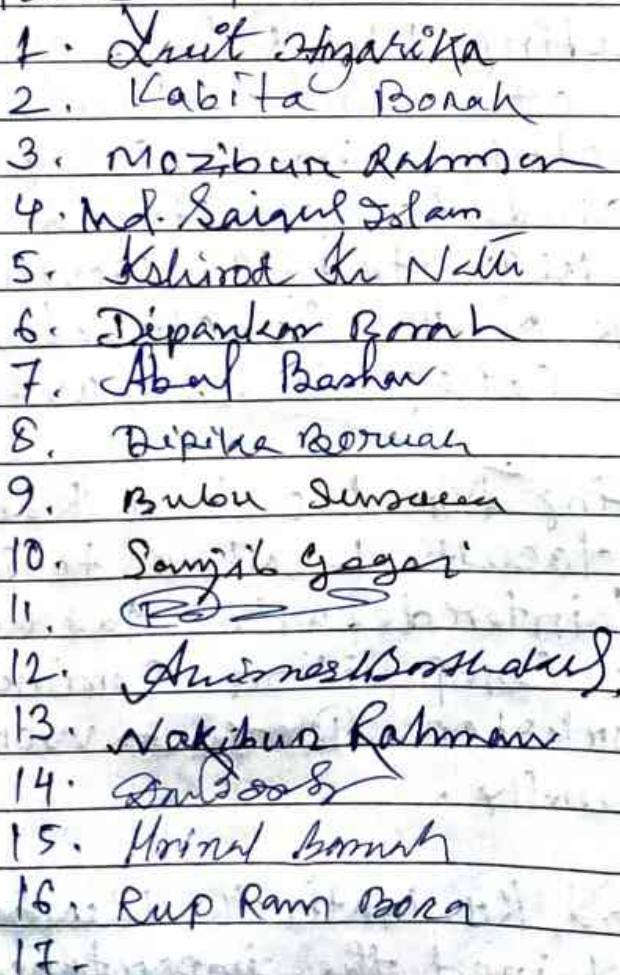 1. Luit Hazarika
2. Kabita Borah
3. Mozibur Rahman
4. Md. Saiqul Islam
5. Kshirod Kr Nath
6. Dipankar Borah
7. Abul Bashar
8. Dipika Boruah
9. Bubu
10. Sanjib Gogoi
11.
12. Animesh Borthakur
13. Nakibur Rahman
14.
15. Mrinal Baruah
16. Rup Ram Bora
17.